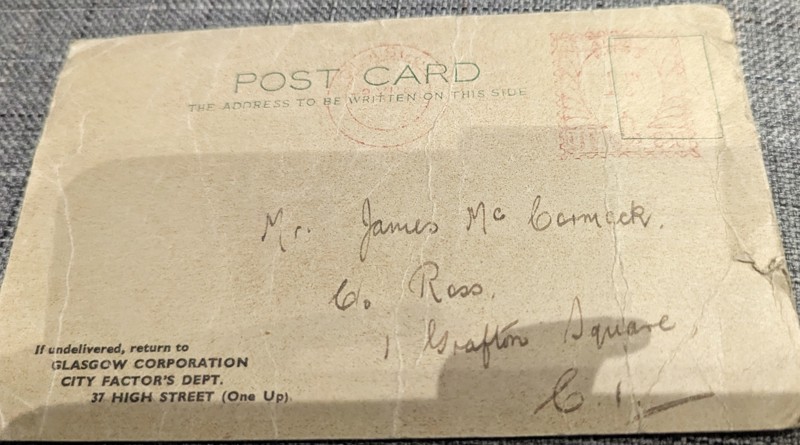 POST CARD
THE ADDRESS TO BE WRITTEN ON THIS SIDE
Mr. James Mc Cormack.
C/o Ross,
1 Grafton Square
C.1.
If undelivered, return to
GLASGOW CORPORATION
CITY FACTOR'S DEPT.
37 HIGH STREET (One Up)